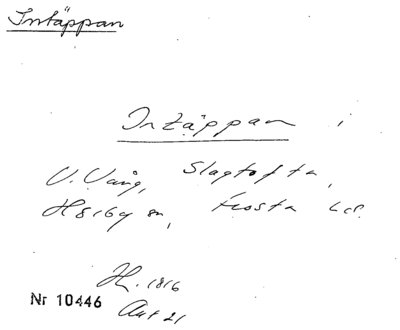 Intäppan
Intäppan i
V. Vång, Slagtofta,
Hörby sn, Frosta hd.
H. 1816
Nr 10446
Akt 21